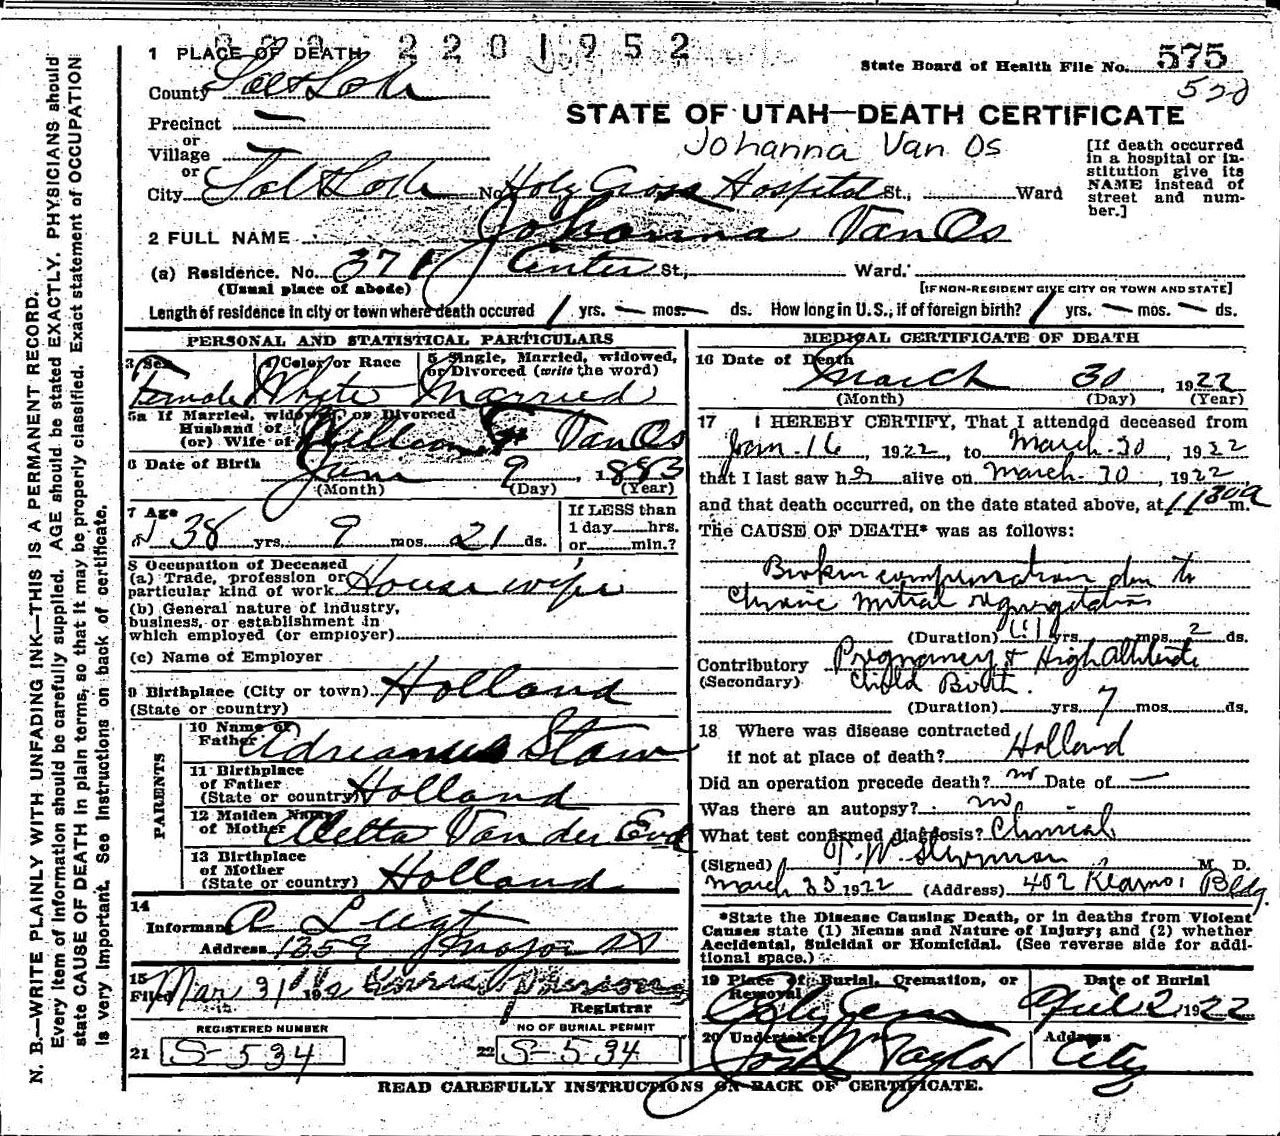 2201952
1 PLACE OF DEATH
State Board of Health File No. 575
County Salt Lake
STATE OF UTAH—DEATH CERTIFICATE
Precinct —
or
Village —
or
Johanna Van Os
[If death occurred in a hospital or institution give its NAME instead of street and number.]
City Salt Lake No. Holy Cross Hospital St., Ward
2 FULL NAME Johanna Van Os
(a) Residence. No. 371 Center St., Ward.
(Usual place of abode) [IF NON-RESIDENT GIVE CITY OR TOWN AND STATE]
Length of residence in city or town where death occured 1 yrs. — mos. — ds. How long in U.S., if of foreign birth? 1 yrs. — mos. — ds.
PERSONAL AND STATISTICAL PARTICULARS
3 Sex Female
4 Color or Race White
5 Single, Married, widowed, or Divorced (write the word) Married
5a If Married, widowed, or Divorced
Husband of
(or) Wife of William Van Os
6 Date of Birth Jan 9, 1883
(Month) (Day) (Year)
7 Age 38 yrs. 9 mos. 21 ds.
If LESS than
1 day hrs.
or min.?
8 Occupation of Deceased
(a) Trade, profession or
particular kind of work House wife
(b) General nature of industry,
business, or establishment in
which employed (or employer)
(c) Name of Employer
9 Birthplace (City or town) Holland
(State or country)
PARENTS
10 Name of
Father Adrianus Stam
11 Birthplace
of Father
(State or country) Holland
12 Maiden Name
of Mother Aletta Van der
13 Birthplace
of Mother
(State or country) Holland
14
Informant A Lugt
Address 1359 Major St
15
Filed Mar 31 19
Registrar
REGISTERED NUMBER NO OF BURIAL PERMIT
21 S-534 22 S-534
MEDICAL CERTIFICATE OF DEATH
16 Date of Death March 30, 1922
(Month) (Day) (Year)
17 I HEREBY CERTIFY, That I attended deceased from
Jan. 16, 1922, to March 30, 1922
that I last saw her alive on March 30, 1922
and that death occurred, on the date stated above, at 1130 a m.
The CAUSE OF DEATH* was as follows:
Broken compensation due to
Chronic mitral regurgitation
(Duration) yrs. mos. 2 ds.
Contributory Pregnancy & High altitude
(Secondary) Child Birth.
(Duration) yrs. 7 mos. ds.
18 Where was disease contracted
if not at place of death? Holland
Did an operation precede death? no Date of —
Was there an autopsy? no
What test confirmed diagnosis? Clinical
(Signed) M. D.
March 1922 (Address) 402 Bldg.
*State the Disease Causing Death, or in deaths from Violent
Causes state (1) Means and Nature of Injury; and (2) whether
Accidental, Suicidal or Homicidal. (See reverse side for additional space.)
19 Place of Burial, Cremation, or
Removal City Cem
Date of Burial
April 2, 1922
20 Undertaker
Jos Wm Taylor
Address
City
READ CAREFULLY INSTRUCTIONS ON BACK OF CERTIFICATE.
N. B.—WRITE PLAINLY WITH UNFADING INK—THIS IS A PERMANENT RECORD.
Every item of information should be carefully supplied. AGE should be stated EXACTLY. PHYSICIANS should
state CAUSE OF DEATH in plain terms, so that it may be properly classified. Exact statement of OCCUPATION
is very important. See instructions on back of certificate.